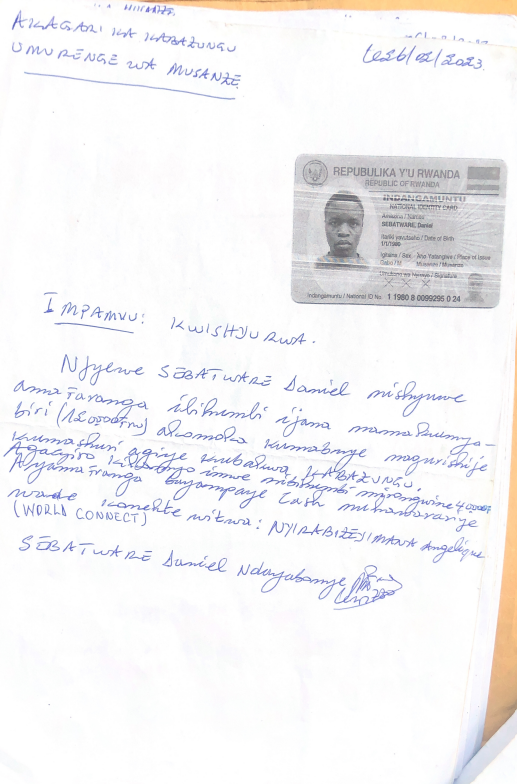 AKAGARI KA KABAZUNGU
UMURENGE WA MUSANZE
Le26/02/2023.
REPUBULIKA Y'U RWANDA
REPUBLIC OF RWANDA
INDANGAMUNTU
NATIONAL IDENTITY CARD
Amazina / Names
SEBATWARE, Daniel
Itariki yavutseho / Date of Birth
1/1/1980
Igitsina / Sex
Aho Yatangiwe / Place of Issue
Gabo / M
Musanze / Musanze
Umukono wa Nyirayo / Signature
Indangamuntu / National ID No. 1 1980 8 0099295 0 24
IMPAMVU: KWISHYURWA.
Njyewe SEBATWARE Daniel nishyuwe
amafaranga ibihumbi ijana
biri akomoka kumabuye nagurishije
kumashuri agiye kubakwa KABAZUNGU.
Agaciro imwe mirongwine
Ayamafranga bayampaye Cash
witwa: NYIRABIZEJIMANA Angelique
(WORLD CONNECT)
SEBATWARE Daniel Ndayabonye